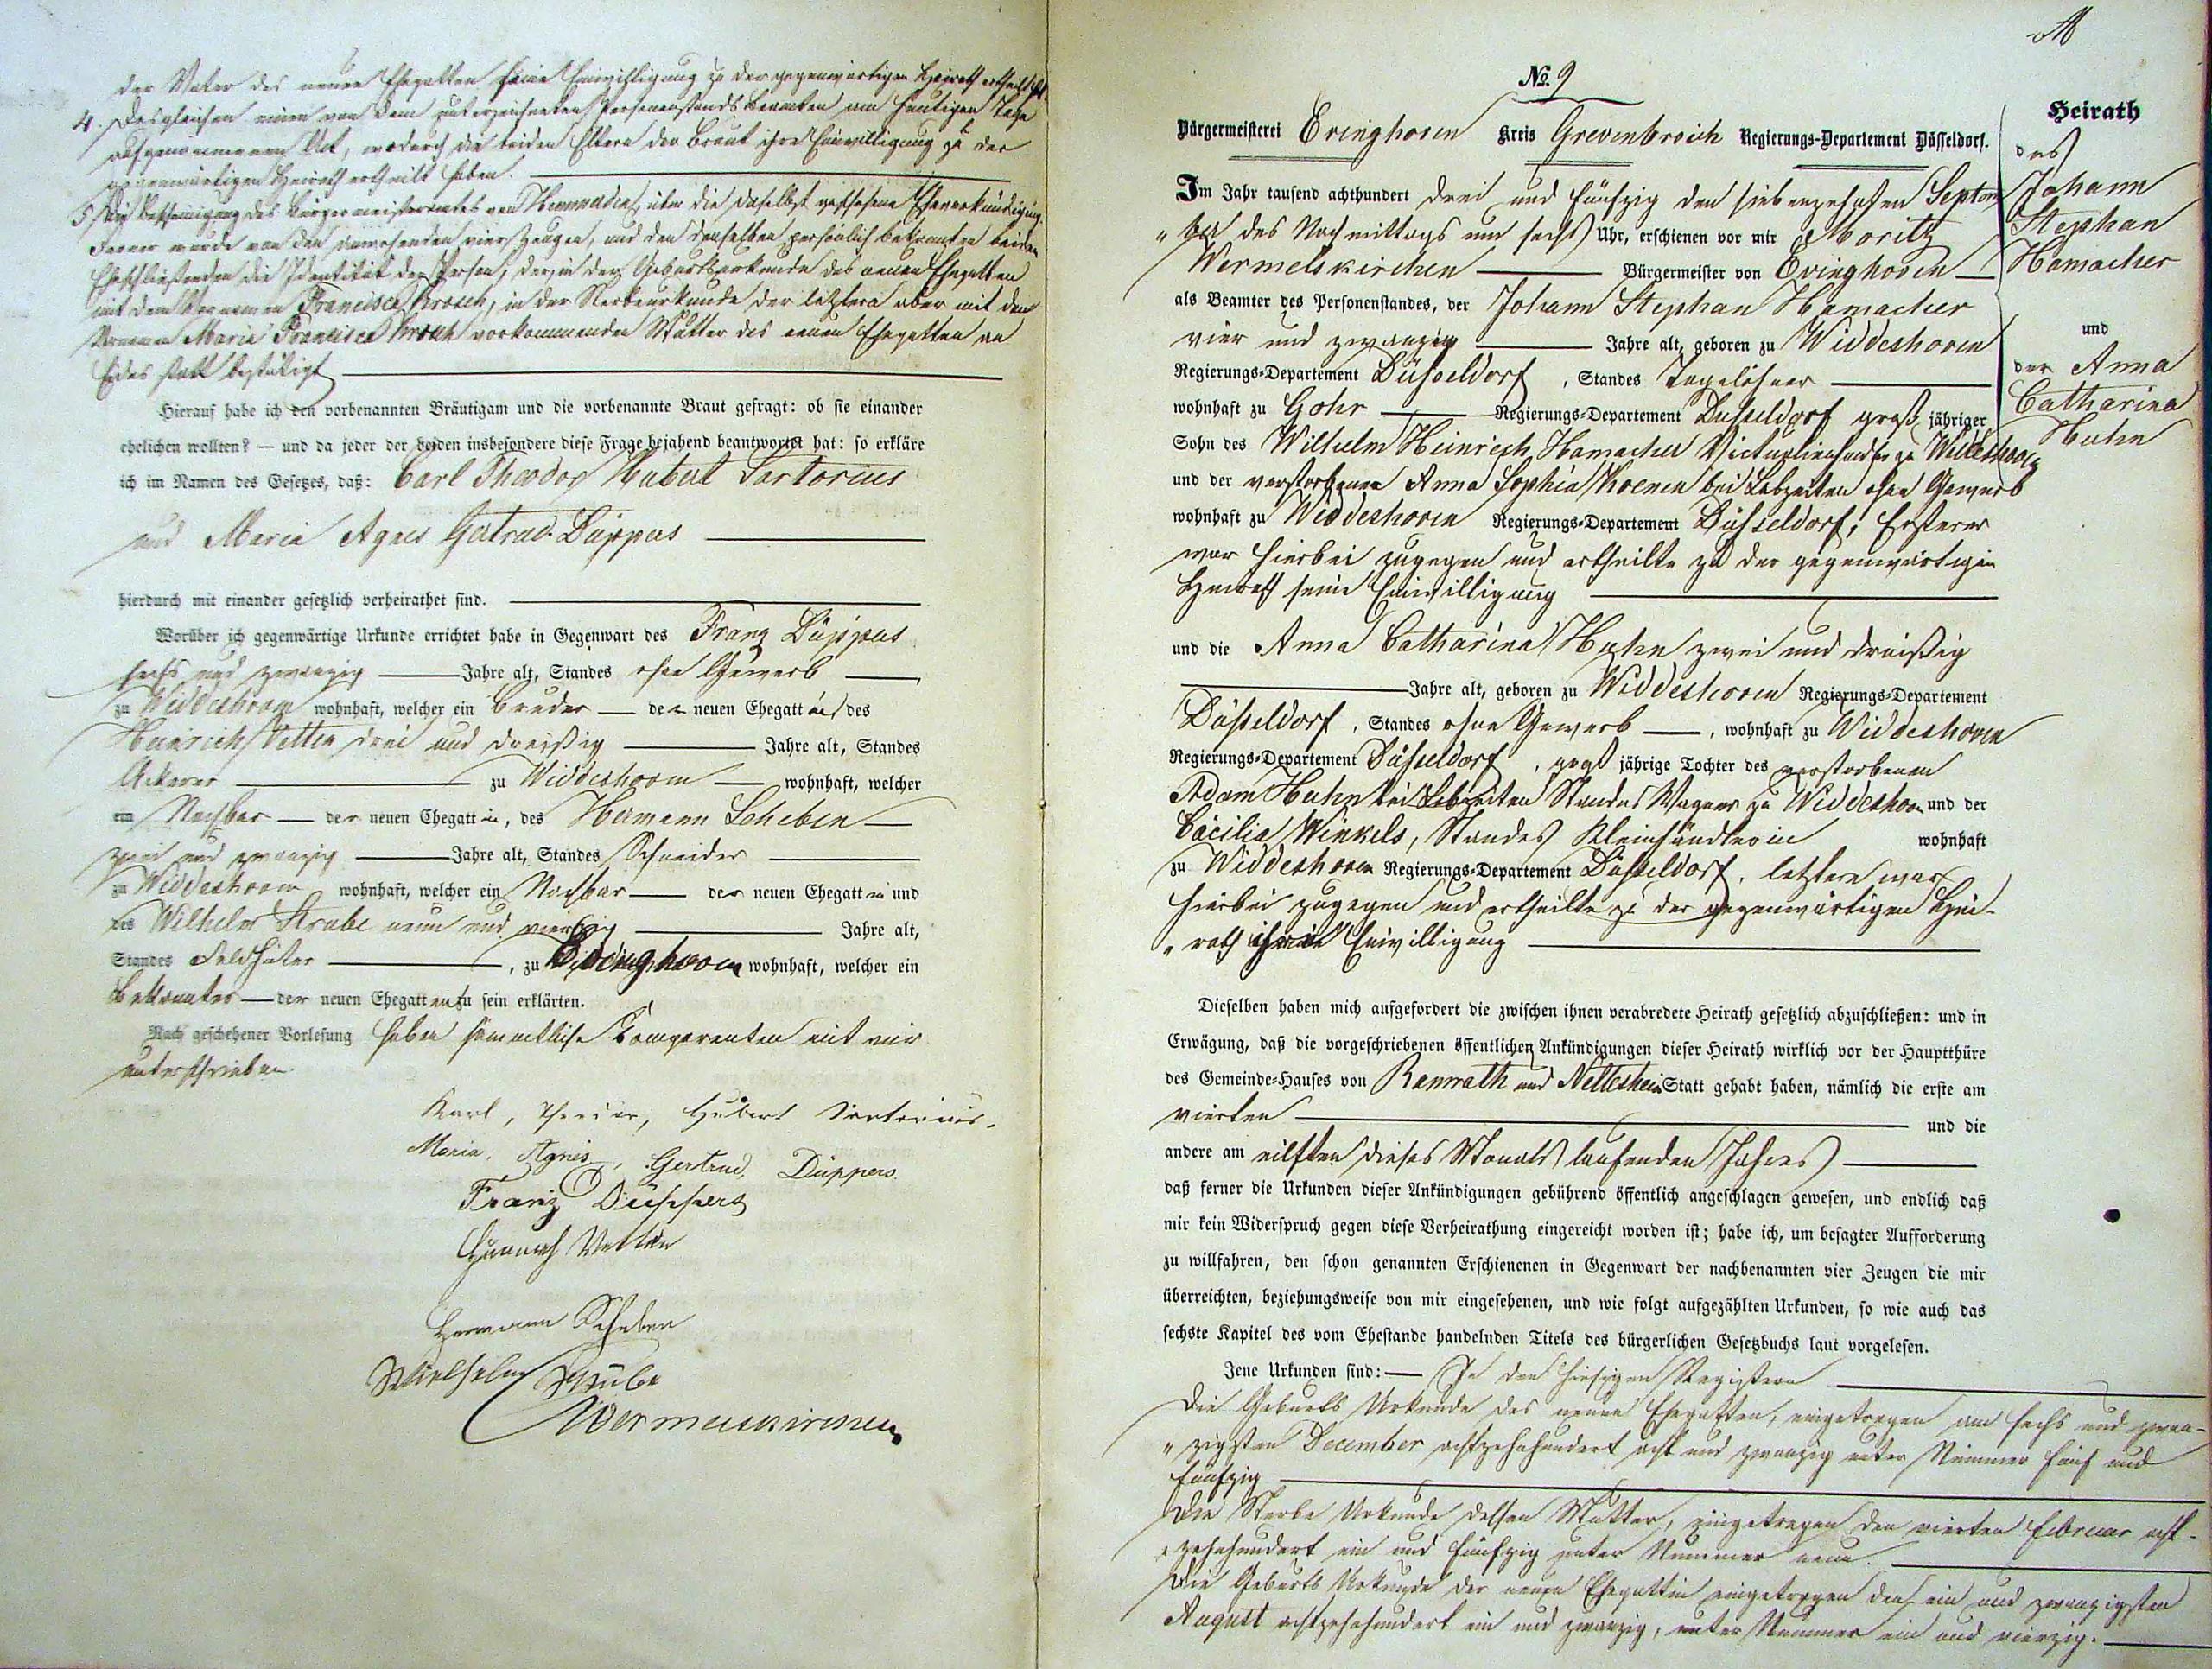 der Vater des neuen Ehegatten seine Einwilligung zu der gegenwärtigen Heirath ertheilt hat.
4. Desgleichen einen von dem unterzeichneten Personenstands Beamten am heutigen Tage
aufgenommenen Akt, wodurch die beiden Eltern der Braut ihre Einwilligung zu der
gegenwärtigen Heirath ertheilt haben.
5. Die Bescheinigung des Bürgermeisteramtes von über die daselbst geschehene Eheverkündigung.
Ferner wurde von den anwesenden vier Zeugen, und den denselben persönlich bekannten beiden
Eheschließenden die Identität der Person, der in der Geburtsurkunde des neuen Ehegatten
mit dem Vornamen Francisca Krosch, in der Sterbeurkunde der letztern aber mit den
Vornamen Maria Francisca vorkommenden Mutter des neuen Ehegatten an
Eides statt bestätigt
Hierauf habe ich den vorbenannten Bräutigam und die vorbenannte Braut gefragt: ob sie einander
ehelichen wollten? — und da jeder der beiden insbesondere diese Frage bejahend beantwortet hat: so erkläre
ich im Namen des Gesetzes, daß: Carl Theodor Hubert Sartorius
und Maria Agnes Gertrud Düppers
hierdurch mit einander gesetzlich verheirathet sind.
Worüber ich gegenwärtige Urkunde errichtet habe in Gegenwart des Franz Düppers
sechs und zwanzig Jahre alt, Standes ohne Gewerb
zu Widdeshoven wohnhaft, welcher ein Bruder der neuen Ehegattin, des
Heinrich Vetten drei und dreißig Jahre alt, Standes
Ackerer zu Widdeshoven wohnhaft, welcher
ein Nachbar der neuen Ehegattin, des Hermann Scheben
zwei und zwanzig Jahre alt, Standes Schneider
zu Widdeshoven wohnhaft, welcher ein Nachbar der neuen Ehegattin und
des Wilhelm Strube neun und vierzig Jahre alt,
Standes Feldhüter, zu Evinghoven wohnhaft, welcher ein
Bekannter der neuen Ehegatten zu sein erklärten.
Nach geschehener Vorlesung haben sämmtliche Comparenten mit mir
unterschrieben.
Karl, Theodor, Hubert Sartorius.
Maria, Agnes, Gertrud, Düppers.
Franz Düppers
Heinrich Vetten
Hermann Scheben
Wilhelm Strube
Wermelskirchen
No. 9
Bürgermeisterei Evinghoven Kreis Grevenbroich Regierungs-Departement Düsseldorf.
Im Jahr tausend achthundert drei und fünfzig den siebenzehnten Septem
„ber des Nachmittags um sechs Uhr, erschienen vor mir Moritz
Wermelskirchen Bürgermeister von Evinghoven
als Beamter des Personenstandes, der Johann Stephan Hamacher
vier und zwanzig Jahre alt, geboren zu Widdeshoven
Regierungs-Departement Düsseldorf, Standes Tagelöhner
wohnhaft zu Gohr Regierungs-Departement Düsseldorf groß jähriger
Sohn des Wilhelm Heinrich Hamacher Victualienhändler zu Widdeshoven
und der verstorbenen Anna Sophia Koenen bei Lebzeiten ohne Gewerb
wohnhaft zu Widdeshoven Regierungs-Departement Düsseldorf; Ersterer
war hierbei zugegen und ertheilte zu der gegenwärtigen
Heirath seine Einwilligung
und die Anna Catharina Hahn zwei und dreißig
Jahre alt, geboren zu Widdeshoven Regierungs-Departement
Düsseldorf, Standes ohne Gewerb, wohnhaft zu Widdeshoven
Regierungs-Departement Düsseldorf, groß jährige Tochter des verstorbenen
Adam Hahn bei Lebzeiten Standes Wagner zu Widdeshoven und der
Cäcilia Winkels, Standes Kleinhändlerin wohnhaft
zu Widdeshoven Regierungs-Departement Düsseldorf, letztere war
hierbei zugegen und ertheilte zu der gegenwärtigen Hei-
„rath ihre Einwilligung
Dieselben haben mich aufgefordert die zwischen ihnen verabredete Heirath gesetzlich abzuschließen: und in
Erwägung, daß die vorgeschriebenen öffentlichen Ankündigungen dieser Heirath wirklich vor der Hauptthüre
des Gemeinde-Hauses von Ramrath und Nettesheim Statt gehabt haben, nämlich die erste am
vierten und die
andere am eilften dieses Monats laufenden Jahres
daß ferner die Urkunden dieser Ankündigungen gebührend öffentlich angeschlagen gewesen, und endlich daß
mir kein Widerspruch gegen diese Verheirathung eingereicht worden ist; habe ich, um besagter Aufforderung
zu willfahren, den schon genannten Erschienenen in Gegenwart der nachbenannten vier Zeugen die mir
überreichten, beziehungsweise von mir eingesehenen, und wie folgt aufgezählten Urkunden, so wie auch das
sechste Kapitel des vom Ehestande handelnden Titels des bürgerlichen Gesetzbuchs laut vorgelesen.
Jene Urkunden sind: — In den hiesigen Registern
Die Geburts Urkunde des neuen Ehegatten, eingetragen am sechs und zwan-
„zigsten December achtzehnhundert acht und zwanzig unter Nummer fünf und
fünfzig
Die Sterbe Urkunde dessen Mutter, eingetragen den vierten Februar acht-
„zehnhundert ein und fünfzig unter Nummer neun.
Die Geburts Urkunde der neuen Ehegattin eingetragen den ein und zwanzigsten
August achtzehnhundert ein und zwanzig, unter Nummer ein und vierzig.
Heirath
des
Johann
Stephan
Hamacher
und
der Anna
Catharina
Hahn